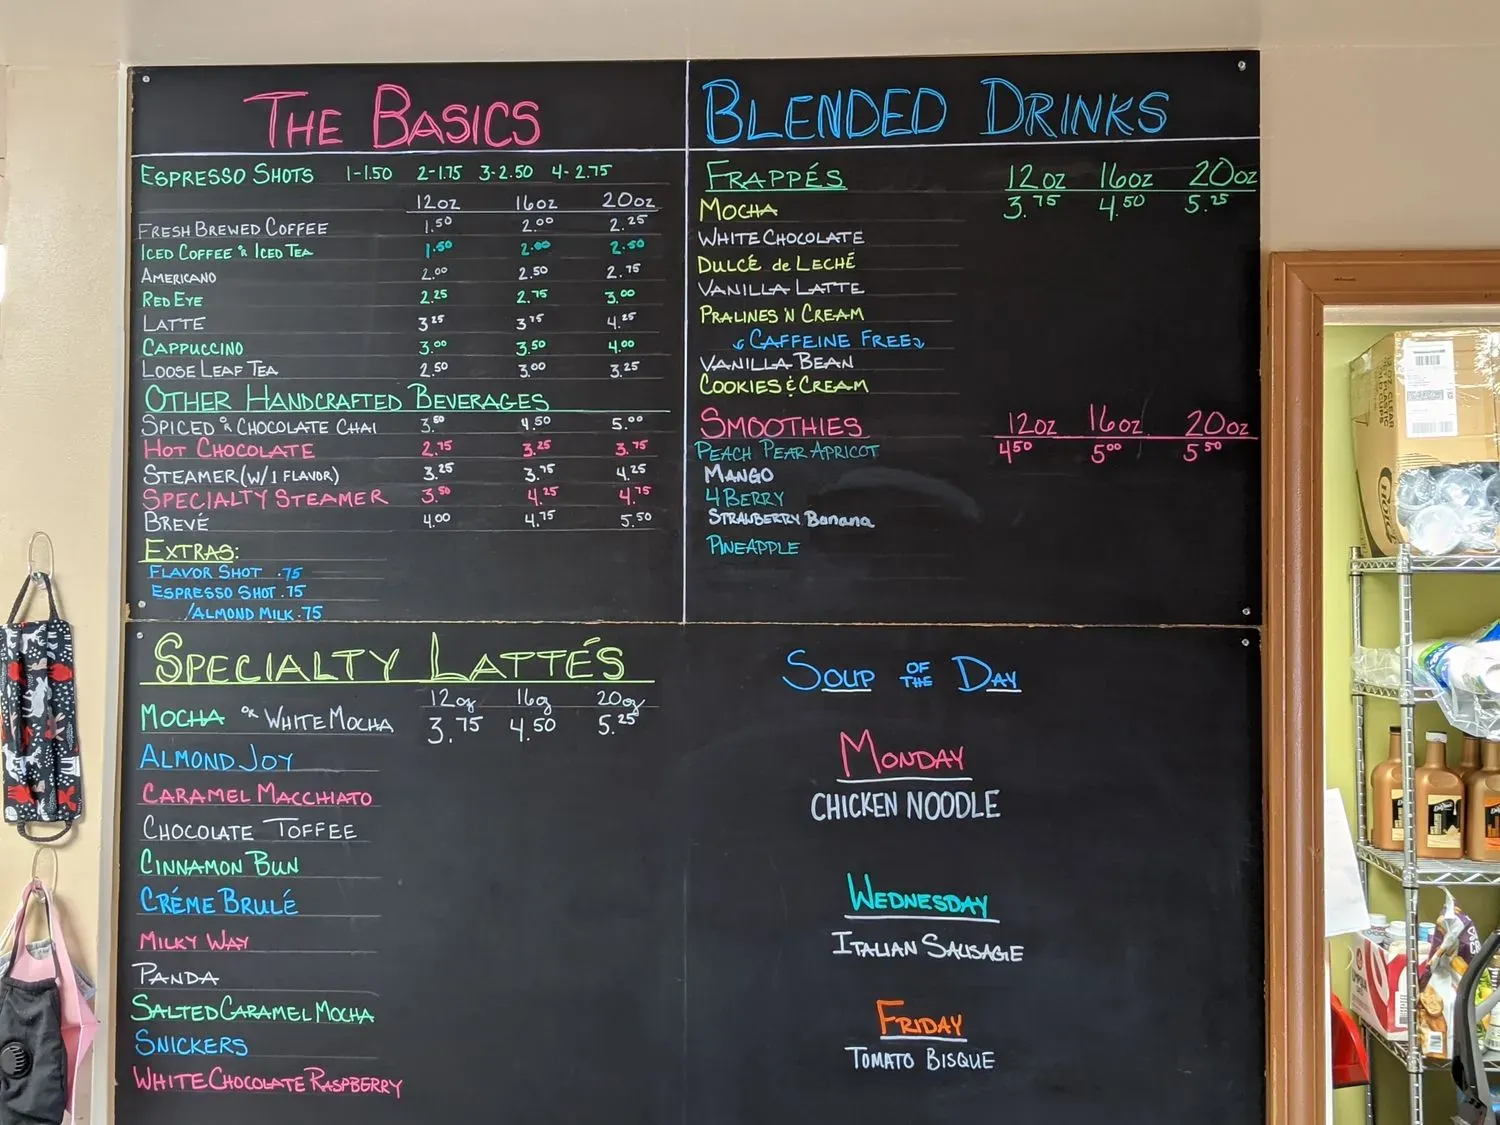 THE BASICS
ESPRESSO SHOTS 1-1.50 2-1.75 3-2.50 4-2.75
12oz 16oz 20oz
FRESH BREWED COFFEE 1.50 2.00 2.25
ICED COFFEE OR ICED TEA 1.50 2.00 2.50
AMERICANO 2.00 2.50 2.75
RED EYE 2.25 2.75 3.00
LATTE 3.25 3.75 4.25
CAPPUCCINO 3.00 3.50 4.00
LOOSE LEAF TEA 2.50 3.00 3.25
OTHER HANDCRAFTED BEVERAGES
SPICED OR CHOCOLATE CHAI 3.50 4.50 5.00
HOT CHOCOLATE 2.75 3.25 3.75
STEAMER (W/1 FLAVOR) 3.25 3.75 4.25
SPECIALTY STEAMER 3.50 4.25 4.75
BREVÉ 4.00 4.75 5.50
EXTRAS:
FLAVOR SHOT .75
ESPRESSO SHOT .75
/ALMOND MILK .75
BLENDED DRINKS
FRAPPÉS 12oz 16oz 20oz
MOCHA 3.75 4.50 5.25
WHITE CHOCOLATE
DULCÉ de LECHÉ
VANILLA LATTE
PRALINES 'N CREAM
CAFFEINE FREE
VANILLA BEAN
COOKIES & CREAM
SMOOTHIES 12oz 16oz 20oz
PEACH PEAR APRICOT 4.50 5.00 5.50
MANGO
4 BERRY
STRAWBERRY Banana
PINEAPPLE
SPECIALTY LATTÉS
12oz 16oz 20oz
MOCHA OR WHITE MOCHA 3.75 4.50 5.25
ALMOND JOY
CARAMEL MACCHIATO
CHOCOLATE TOFFEE
CINNAMON BUN
CRÉME BRULÉ
MILKY WAY
PANDA
SALTED CARAMEL MOCHA
SNICKERS
WHITE CHOCOLATE RASPBERRY
SOUP OF THE DAY
MONDAY
CHICKEN NOODLE
WEDNESDAY
ITALIAN SAUSAGE
FRIDAY
TOMATO BISQUE